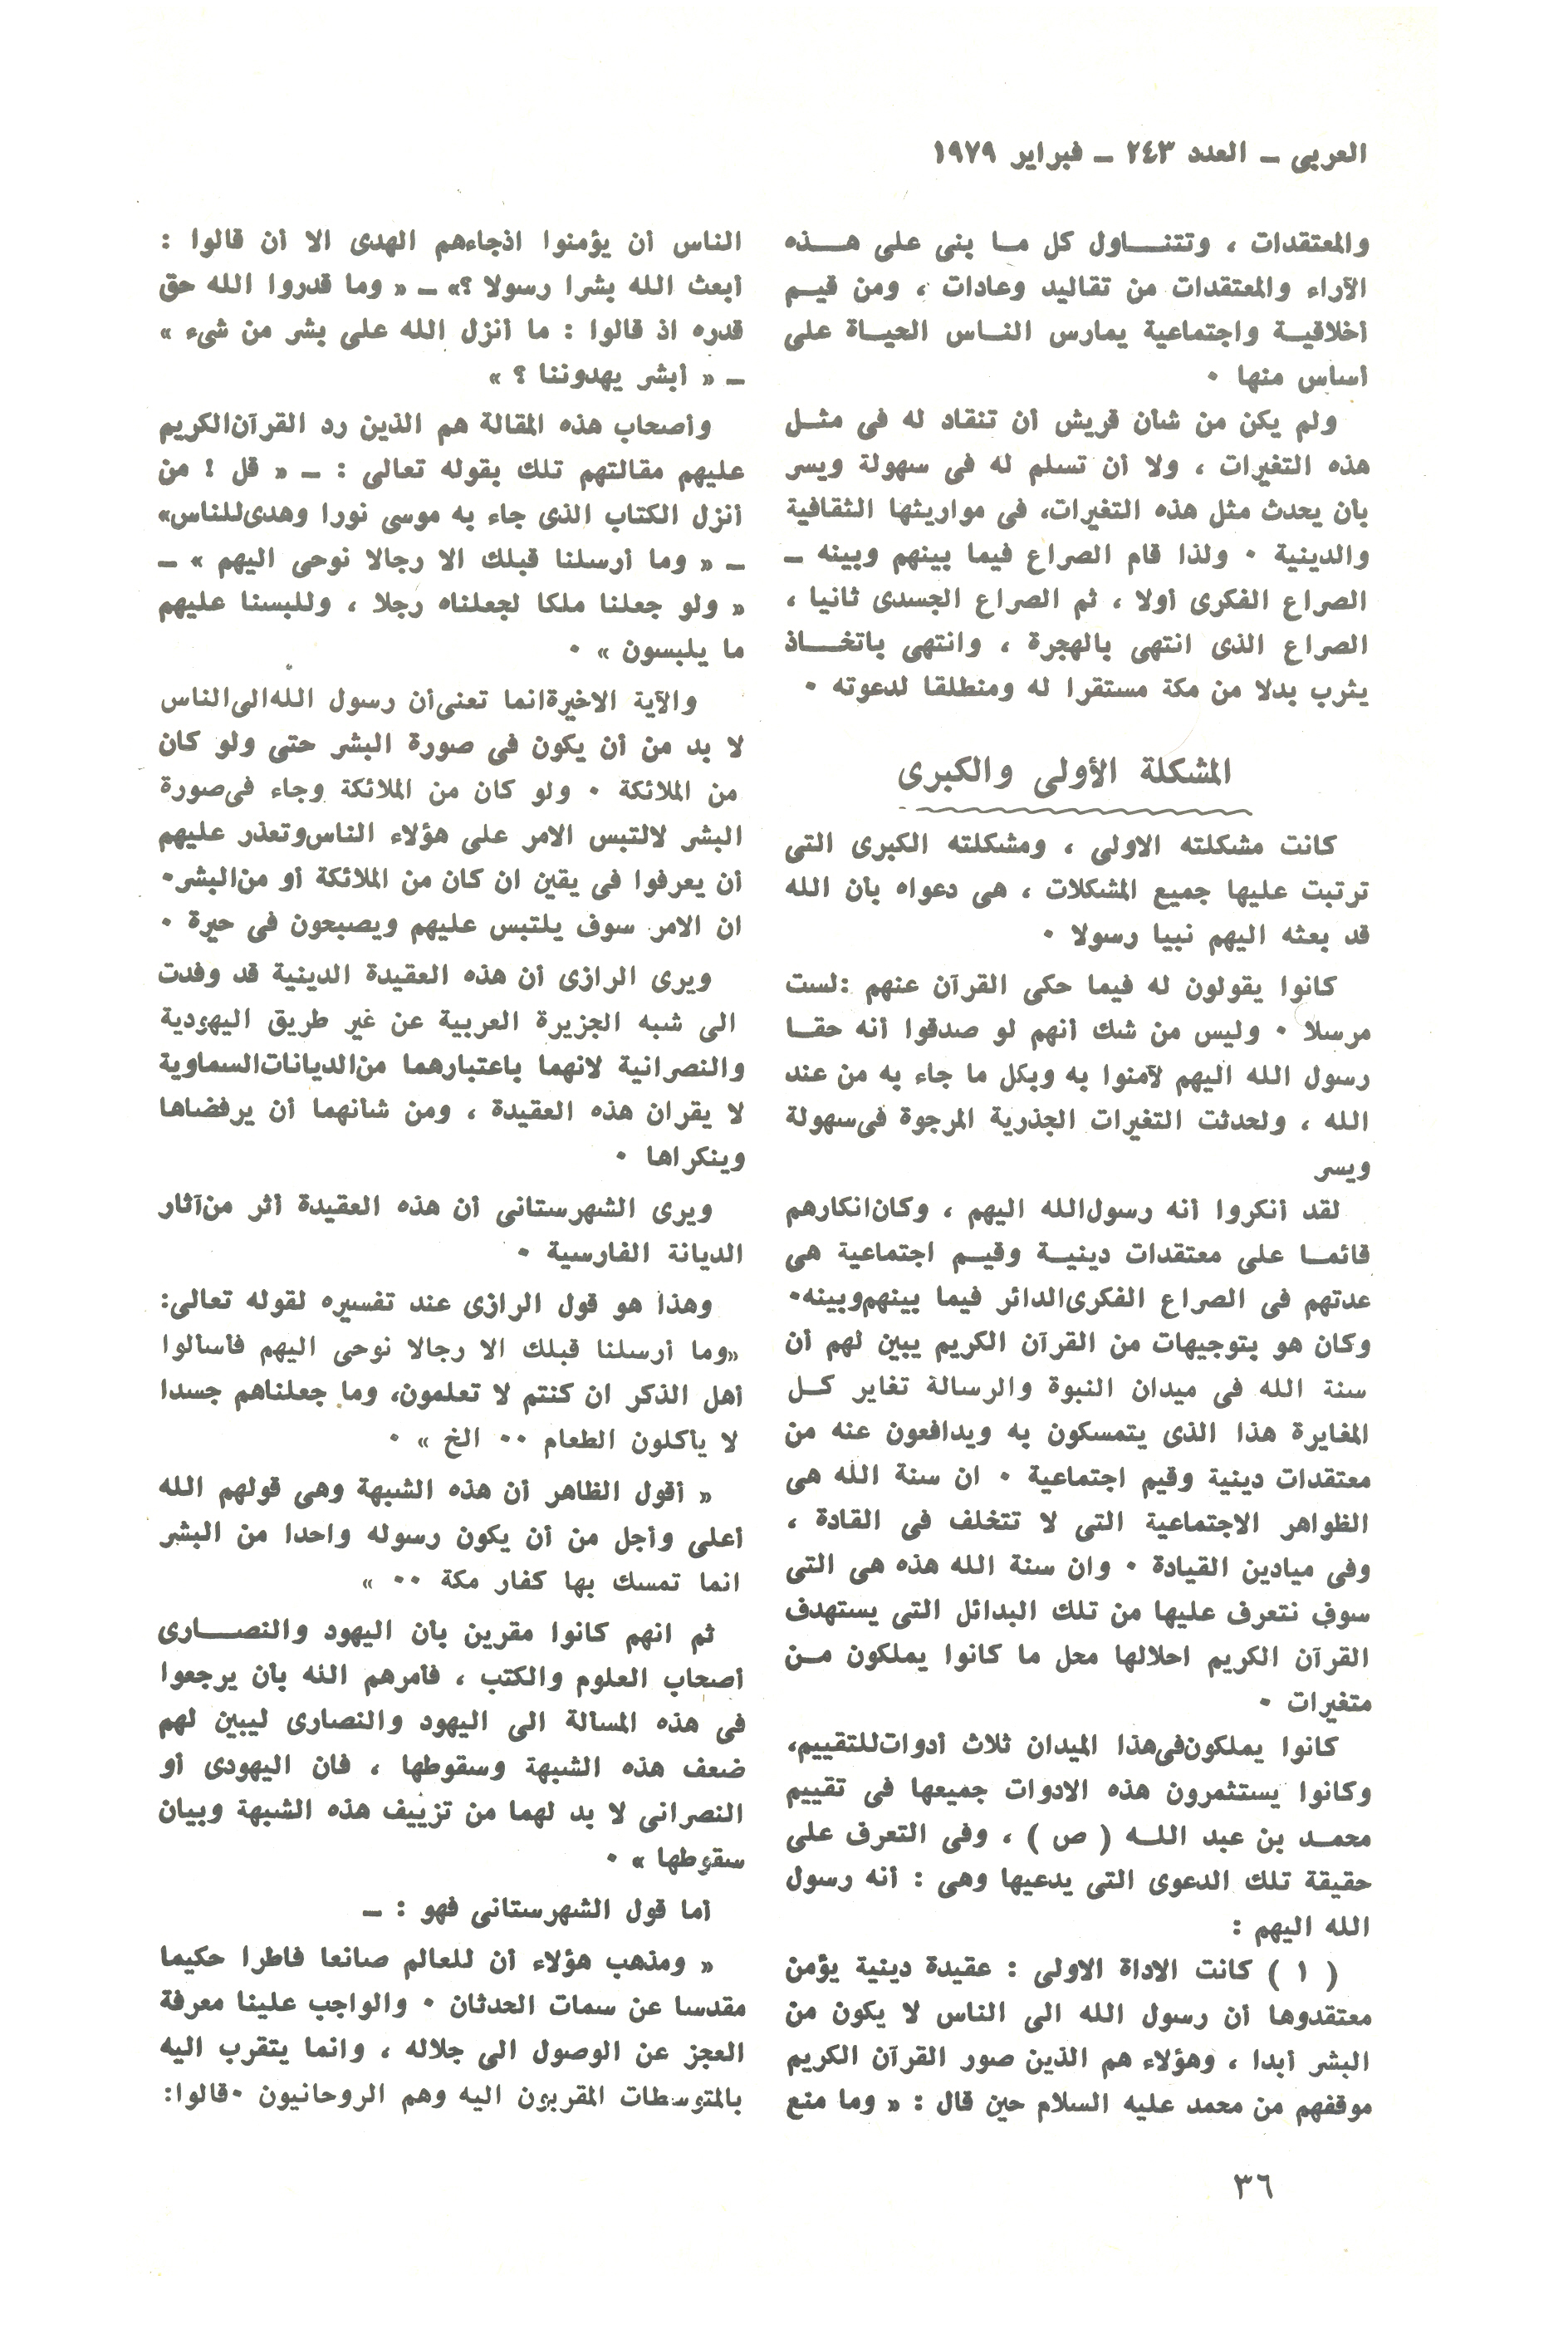 العربى ــ العدد ٢٤٣ ــ فبراير ١٩٧٩
والمعتقدات ، وتتنــــاول كل مــا بنى على هــــذه
الآراء والمعتقدات من تقاليد وعادات ، ومن قيــم
أخلاقيــة واجتماعية يمارس النــاس الحيــاة على
أساس منها ٠
ولم يكن من شأن قريش أن تنقاد له فى مثــل
هذه التغيرات ، ولا أن تسلم له فى سهولة ويسر
بأن يحدث مثل هذه التغيرات، فى مواريثها الثقافية
والدينية ٠ ولذا قام الصراع فيما بينهم وبينه ــ
الصراع الفكرى أولا ، ثم الصراع الجسدى ثانيا ،
الصراع الذى انتهى بالهجرة ، وانتهى باتخــــاذ
يثرب بدلا من مكة مستقرا له ومنطلقا لدعوته ٠
المشكلة الأولى والكبرى
كانت مشكلته الاولى ، ومشكلته الكبرى التى
ترتبت عليها جميع المشكلات ، هى دعواه بأن الله
قد بعثه اليهم نبيا رسولا ٠
كانوا يقولون له فيما حكى القرآن عنهم :لست
مرسلا ٠ وليس من شك أنهم لو صدقوا أنه حقــا
رسول الله اليهم لآمنوا به وبكل ما جاء به من عند
الله ، ولحدثت التغيرات الجذرية المرجوة فى سهولة
ويسر
لقد أنكروا أنه رسول الله اليهم ، وكان انكارهم
قائمــا على معتقدات دينيــة وقيــم اجتماعية هى
عدتهم فى الصراع الفكرى الدائر فيما بينهم وبينه٠
وكان هو بتوجيهات من القرآن الكريم يبين لهم أن
سنة الله فى ميدان النبوة والرسالة تغاير كــل
المغايرة هذا الذى يتمسكون به ويدافعون عنه من
معتقدات دينية وقيم اجتماعية ٠ ان سنة الله هى
الظواهر الاجتماعية التى لا تتخلف فى القادة ،
وفى ميادين القيادة ٠ وان سنة الله هذه هى التى
سوف نتعرف عليها من تلك البدائل التى يستهدف
القرآن الكريم احلالها محل ما كانوا يملكون مــن
متغيرات ٠
كانوا يملكون فى هذا الميدان ثلاث أدوات للتقييم،
وكانوا يستثمرون هذه الادوات جميعها فى تقييم
محمــد بن عبد اللــه ( ص ) ، وفى التعرف على
حقيقة تلك الدعوى التى يدعيها وهى : أنه رسول
الله اليهم :
( ١ ) كانت الاداة الاولى : عقيدة دينية يؤمن
معتقدوها أن رسول الله الى الناس لا يكون من
البشر أبدا ، وهؤلاء هم الذين صور القرآن الكريم
موقفهم من محمد عليه السلام حين قال : « وما منع
الناس أن يؤمنوا اذجاءهم الهدى الا أن قالوا :
أبعث الله بشرا رسولا ؟» ــ « وما قدروا الله حق
قدره اذ قالوا : ما أنزل الله على بشر من شىء »
ــ « أبشر يهدوننا ؟ »
وأصحاب هذه المقالة هم الذين رد القرآن الكريم
عليهم مقالتهم تلك بقوله تعالى : ــ « قل ! من
أنزل الكتاب الذى جاء به موسى نورا وهدى للناس»
ــ « وما أرسلنا قبلك الا رجالا نوحى اليهم » ــ
« ولو جعلنا ملكا لجعلناه رجلا ، وللبسنا عليهم
ما يلبسون » ٠
والآية الاخيرة انما تعنى أن رسول الله الى الناس
لا بد من أن يكون فى صورة البشر حتى ولو كان
من الملائكة ٠ ولو كان من الملائكة وجاء فى صورة
البشر لالتبس الامر على هؤلاء الناس وتعذر عليهم
أن يعرفوا فى يقين ان كان من الملائكة أو من البشر٠
ان الامر سوف يلتبس عليهم ويصبحون فى حيرة ٠
ويرى الرازى أن هذه العقيدة الدينية قد وفدت
الى شبه الجزيرة العربية عن غير طريق اليهودية
والنصرانية لانهما باعتبارهما من الديانات السماوية
لا يقران هذه العقيدة ، ومن شأنهما أن يرفضاها
وينكراها ٠
ويرى الشهرستانى أن هذه العقيدة أثر من آثار
الديانة الفارسية ٠
وهذا هو قول الرازى عند تفسيره لقوله تعالى:
«وما أرسلنا قبلك الا رجالا نوحى اليهم فأسألوا
أهل الذكر ان كنتم لا تعلمون، وما جعلناهم جسدا
لا يأكلون الطعام ٠٠ الخ » ٠
« أقول الظاهر أن هذه الشبهة وهى قولهم الله
أعلى وأجل من أن يكون رسوله واحدا من البشر
انما تمسك بها كفار مكة ٠٠ »
ثم انهم كانوا مقرين بأن اليهود والنصــــارى
أصحاب العلوم والكتب ، فأمرهم الله بأن يرجعوا
فى هذه المسألة الى اليهود والنصارى ليبين لهم
ضعف هذه الشبهة وسقوطها ، فان اليهودى أو
النصرانى لا بد لهما من تزييف هذه الشبهة وبيان
سقوطها » ٠
أما قول الشهرستانى فهو : ــ
« ومذهب هؤلاء أن للعالم صانعا فاطرا حكيما
مقدسا عن سمات الحدثان ٠ والواجب علينا معرفة
العجز عن الوصول الى جلاله ، وانما يتقرب اليه
بالمتوسطات المقربون اليه وهم الروحانيون ٠قالوا:
٣٦